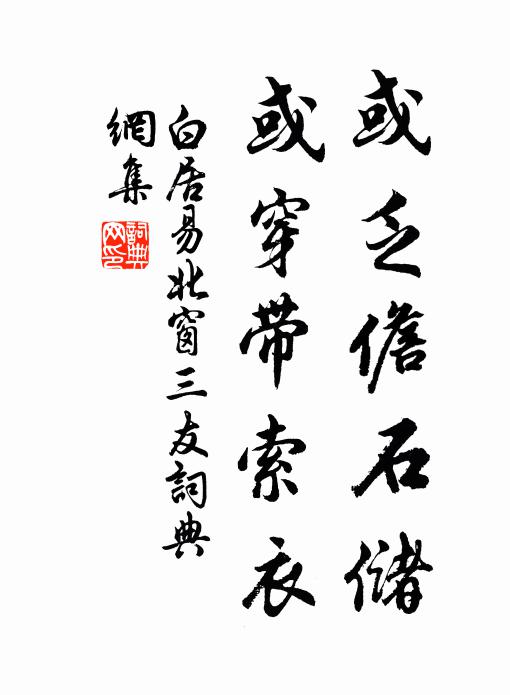 或乏儋石儲
或穿帶索衣
白居易北窗三友詞典
網集
詞典
网印